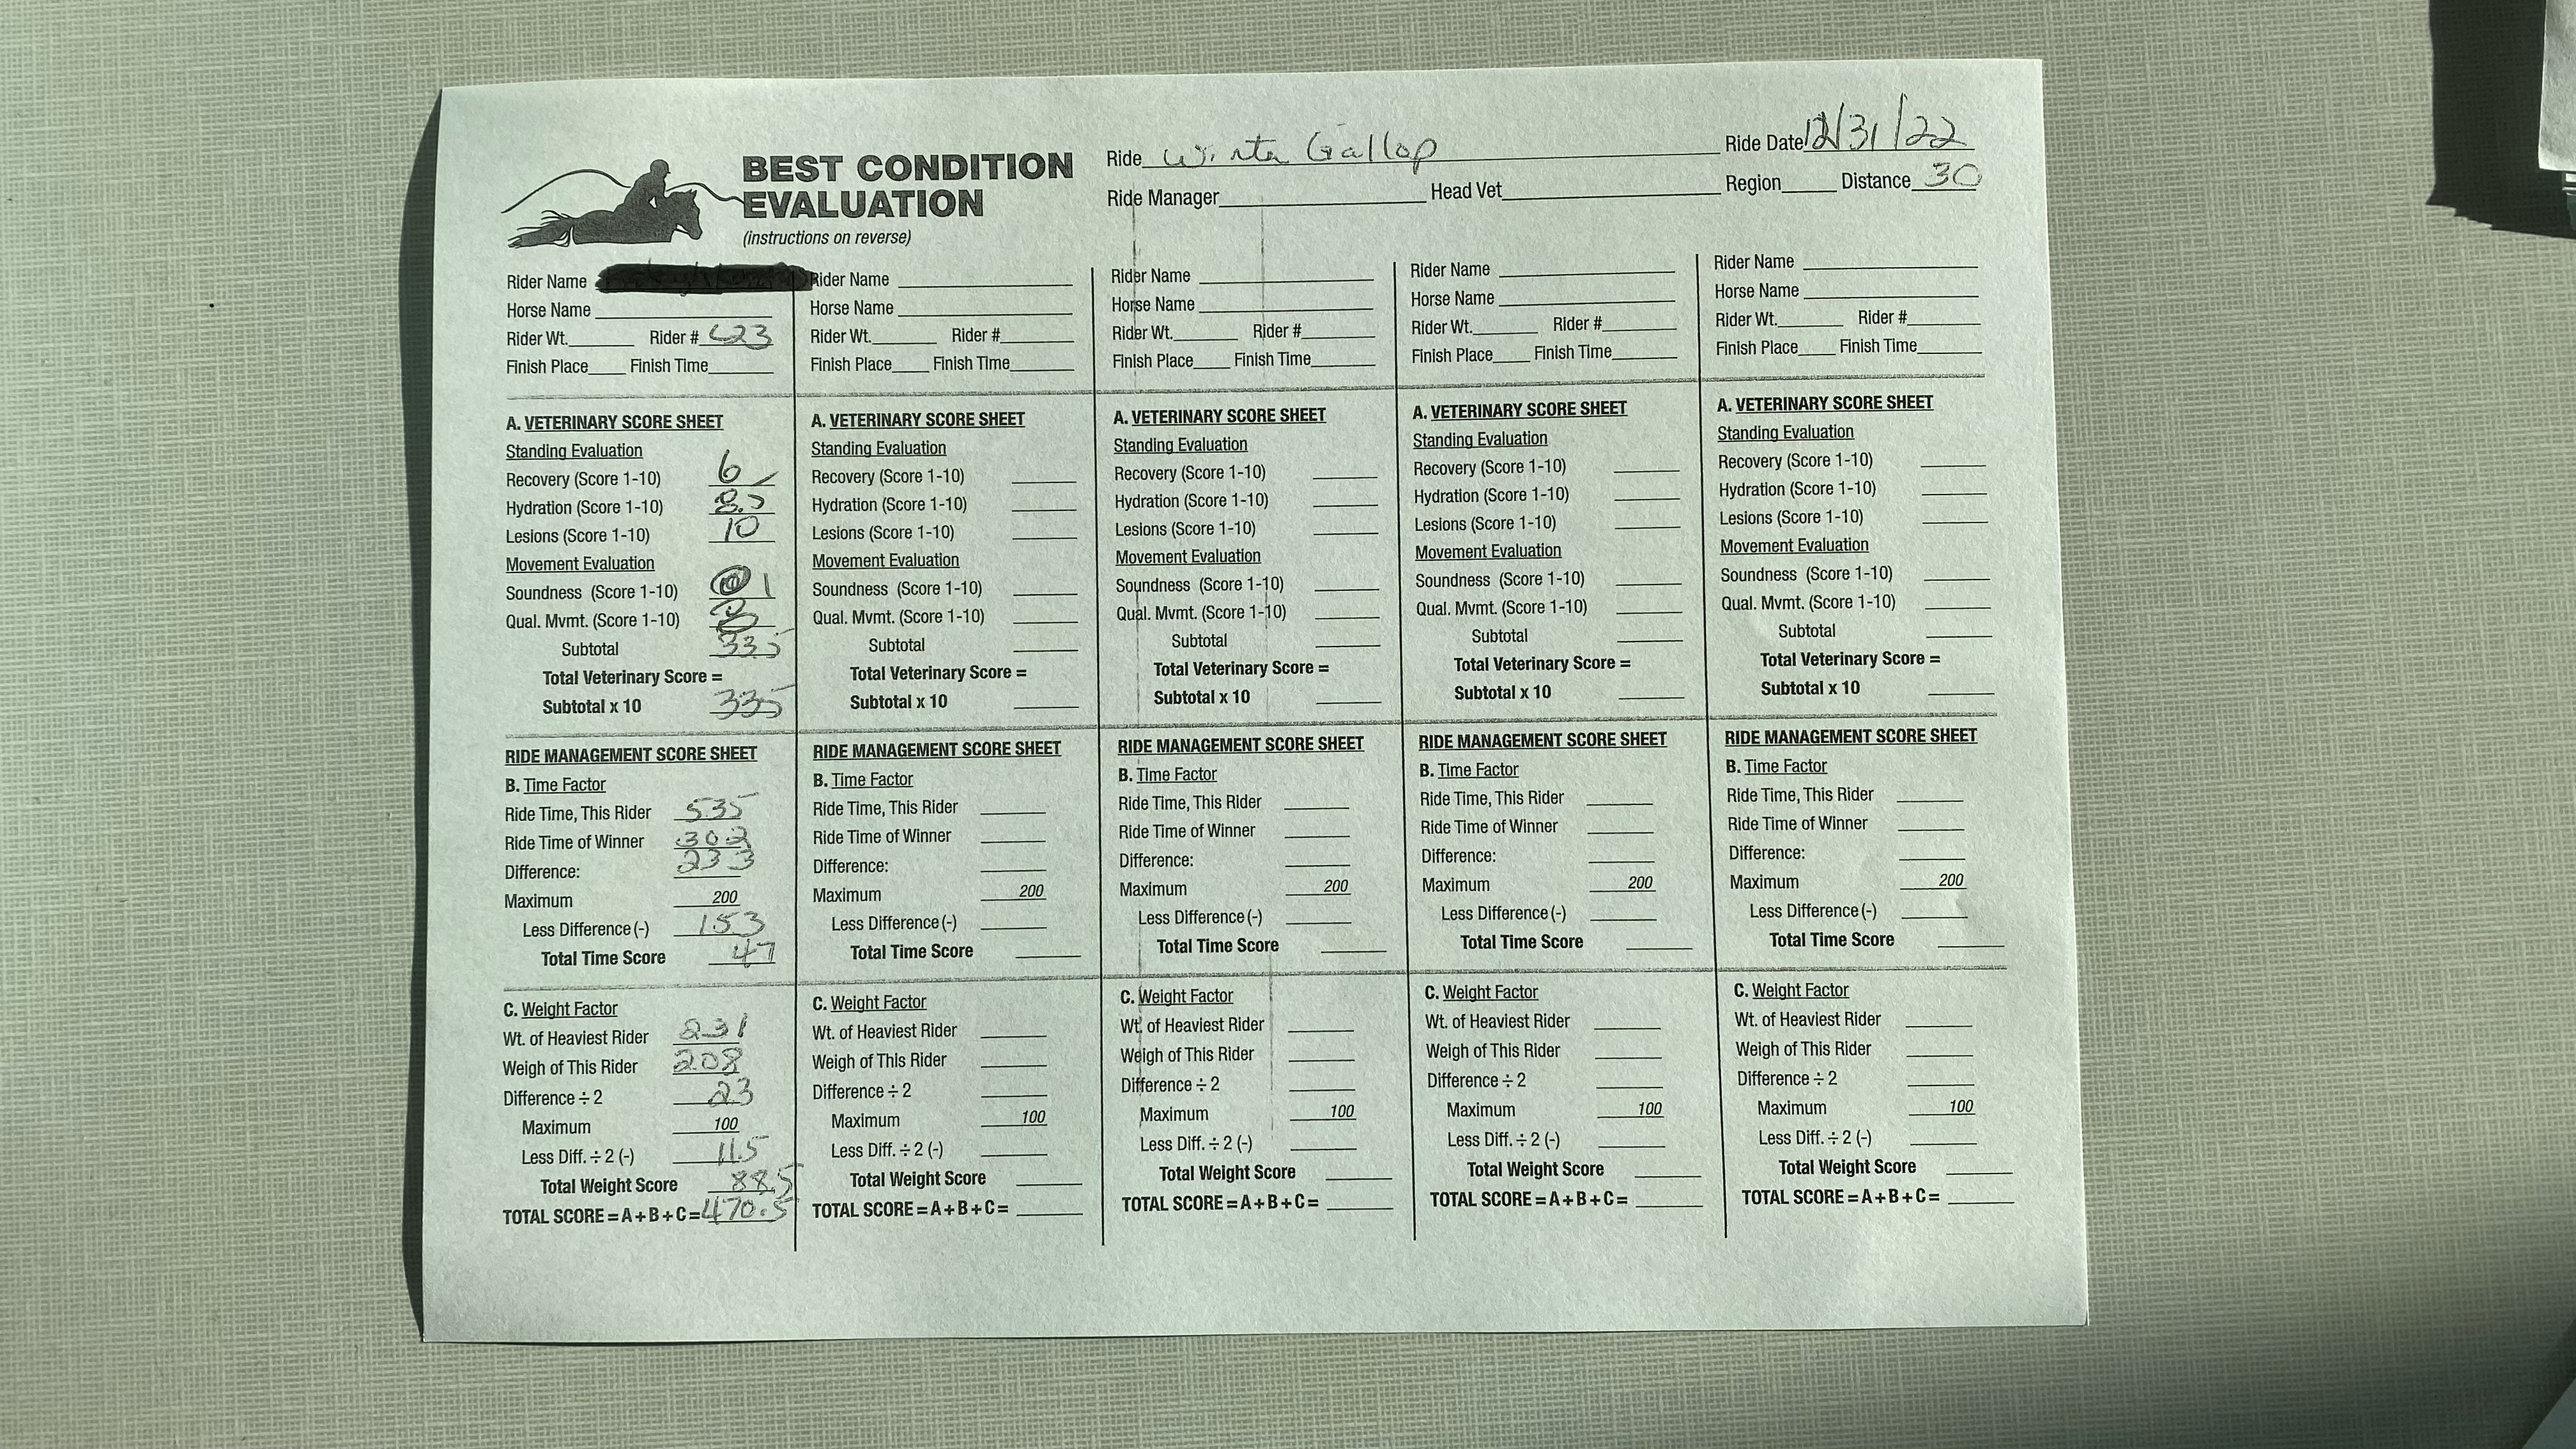 BEST CONDITION
EVALUATION
(instructions on reverse)
Ride Gallop
Ride Date 12/31/22
Ride Manager Head Vet Region Distance 30
Rider Name
Horse Name
Rider Wt. Rider # 423
Finish Place Finish Time
A. VETERINARY SCORE SHEET
Standing Evaluation
Recovery (Score 1-10) 6
Hydration (Score 1-10) 8.5
Lesions (Score 1-10) 10
Movement Evaluation
Soundness (Score 1-10) 1
Qual. Mvmt. (Score 1-10) 8
Subtotal 33.5
Total Veterinary Score =
Subtotal x 10 335
RIDE MANAGEMENT SCORE SHEET
B. Time Factor
Ride Time, This Rider 535
Ride Time of Winner 302
Difference: 233
Maximum 200
Less Difference (-) 153
Total Time Score 47
C. Weight Factor
Wt. of Heaviest Rider 231
Weigh of This Rider 208
Difference ÷ 2 23
Maximum 100
Less Diff. ÷ 2 (-) 11.5
Total Weight Score 88.5
TOTAL SCORE = A + B + C = 470.5
Rider Name
Horse Name
Rider Wt. Rider #
Finish Place Finish Time
A. VETERINARY SCORE SHEET
Standing Evaluation
Recovery (Score 1-10)
Hydration (Score 1-10)
Lesions (Score 1-10)
Movement Evaluation
Soundness (Score 1-10)
Qual. Mvmt. (Score 1-10)
Subtotal
Total Veterinary Score =
Subtotal x 10
RIDE MANAGEMENT SCORE SHEET
B. Time Factor
Ride Time, This Rider
Ride Time of Winner
Difference:
Maximum 200
Less Difference (-)
Total Time Score
C. Weight Factor
Wt. of Heaviest Rider
Weigh of This Rider
Difference ÷ 2
Maximum 100
Less Diff. ÷ 2 (-)
Total Weight Score
TOTAL SCORE = A + B + C =
Rider Name
Horse Name
Rider Wt. Rider #
Finish Place Finish Time
A. VETERINARY SCORE SHEET
Standing Evaluation
Recovery (Score 1-10)
Hydration (Score 1-10)
Lesions (Score 1-10)
Movement Evaluation
Soundness (Score 1-10)
Qual. Mvmt. (Score 1-10)
Subtotal
Total Veterinary Score =
Subtotal x 10
RIDE MANAGEMENT SCORE SHEET
B. Time Factor
Ride Time, This Rider
Ride Time of Winner
Difference:
Maximum 200
Less Difference (-)
Total Time Score
C. Weight Factor
Wt. of Heaviest Rider
Weigh of This Rider
Difference ÷ 2
Maximum 100
Less Diff. ÷ 2 (-)
Total Weight Score
TOTAL SCORE = A + B + C =
Rider Name
Horse Name
Rider Wt. Rider #
Finish Place Finish Time
A. VETERINARY SCORE SHEET
Standing Evaluation
Recovery (Score 1-10)
Hydration (Score 1-10)
Lesions (Score 1-10)
Movement Evaluation
Soundness (Score 1-10)
Qual. Mvmt. (Score 1-10)
Subtotal
Total Veterinary Score =
Subtotal x 10
RIDE MANAGEMENT SCORE SHEET
B. Time Factor
Ride Time, This Rider
Ride Time of Winner
Difference:
Maximum 200
Less Difference (-)
Total Time Score
C. Weight Factor
Wt. of Heaviest Rider
Weigh of This Rider
Difference ÷ 2
Maximum 100
Less Diff. ÷ 2 (-)
Total Weight Score
TOTAL SCORE = A + B + C =
Rider Name
Horse Name
Rider Wt. Rider #
Finish Place Finish Time
A. VETERINARY SCORE SHEET
Standing Evaluation
Recovery (Score 1-10)
Hydration (Score 1-10)
Lesions (Score 1-10)
Movement Evaluation
Soundness (Score 1-10)
Qual. Mvmt. (Score 1-10)
Subtotal
Total Veterinary Score =
Subtotal x 10
RIDE MANAGEMENT SCORE SHEET
B. Time Factor
Ride Time, This Rider
Ride Time of Winner
Difference:
Maximum 200
Less Difference (-)
Total Time Score
C. Weight Factor
Wt. of Heaviest Rider
Weigh of This Rider
Difference ÷ 2
Maximum 100
Less Diff. ÷ 2 (-)
Total Weight Score
TOTAL SCORE = A + B + C =